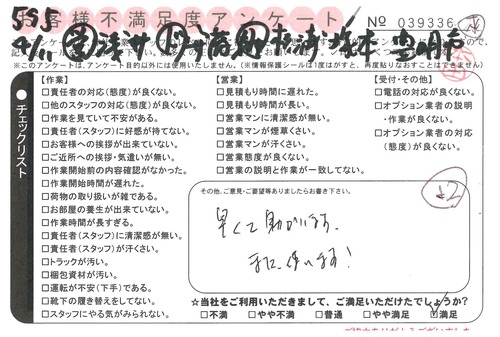 お客様不満足度アンケート
No 039336
※このアンケートは、アンケート目的以外には使用いたしません。(※情報保護シールは1度はがすと、再度貼りなおすことはできません)
チェックリスト
【作業】
□責任者の対応(態度)が良くない。
□他のスタッフの対応(態度)が良くない。
□作業を見ていて不安がある。
□責任者(スタッフ)に好感が持てない。
□お客様への挨拶が出来ていない。
□ご近所への挨拶・気遣いが無い。
□作業開始前の内容確認がなかった。
□作業開始時間が遅れた。
□荷物の取り扱いが雑である。
□お部屋の養生が出来ていない。
□作業時間が長すぎる。
□責任者(スタッフ)に清潔感が無い。
□責任者(スタッフ)が汗くさい。
□トラックが汚い。
□梱包資材が汚い。
□運転が不安(下手)である。
□靴下の履き替えをしてない。
□スタッフにやる気がみられない。
【営業】
□見積もり時間に遅れた。
□見積もり時間が長い。
□営業マンに清潔感が無い。
□営業マンが煙草くさい。
□営業マンが汗くさい。
□営業態度が良くない。
□営業の説明と作業が一致してない。
【受付・その他】
□電話の対応が良くない。
□オプション業者の説明・作業が良くない。
□オプション業者の対応(態度)が良くない。
その他、ご意見・ご要望等ありましたらお書き下さい。
早くて助かります。
また使います!
☆当社をご利用いただきまして、ご満足いただけたでしょうか?
□不満 □やや不満 □普通 □やや満足 ☑満足